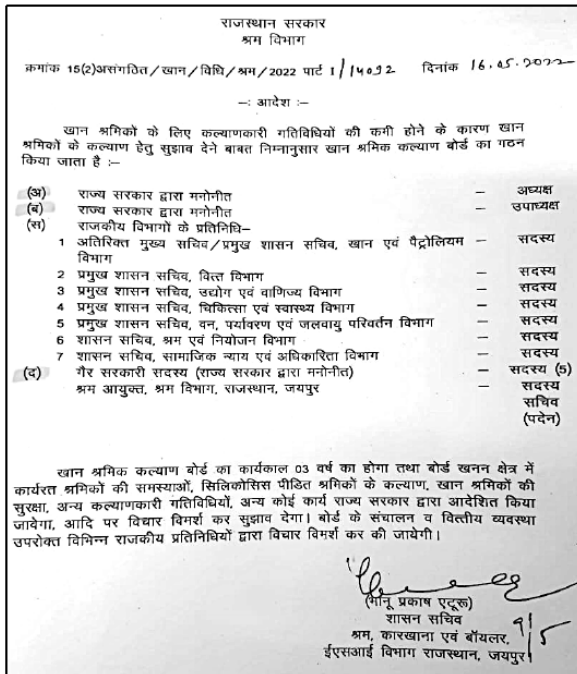 राजस्थान सरकार
श्रम विभाग
क्रमांक 15(2)असंगठित/खान/विधि/श्रम/2022 पार्ट 1/14092 दिनांक 16.05.2022
-: आदेश :-
खान श्रमिकों के लिए कल्याणकारी गतिविधियों की कमी होने के कारण खान
श्रमिकों के कल्याण हेतु सुझाव देने बाबत निम्नानुसार खान श्रमिक कल्याण बोर्ड का गठन
किया जाता है :-
(अ) राज्य सरकार द्वारा मनोनीत – अध्यक्ष
(ब) राज्य सरकार द्वारा मनोनीत – उपाध्यक्ष
(स) राजकीय विभागों के प्रतिनिधि–
1 अतिरिक्त मुख्य सचिव/प्रमुख शासन सचिव, खान एवं पैट्रोलियम – सदस्य
विभाग
2 प्रमुख शासन सचिव, वित्त विभाग – सदस्य
3 प्रमुख शासन सचिव, उद्योग एवं वाणिज्य विभाग – सदस्य
4 प्रमुख शासन सचिव, चिकित्सा एवं स्वास्थ्य विभाग – सदस्य
5 प्रमुख शासन सचिव, वन, पर्यावरण एवं जलवायु परिवर्तन विभाग – सदस्य
6 शासन सचिव, श्रम एवं नियोजन विभाग – सदस्य
7 शासन सचिव, सामाजिक न्याय एवं अधिकारिता विभाग – सदस्य
(द) गैर सरकारी सदस्य (राज्य सरकार द्वारा मनोनीत) – सदस्य (5)
श्रम आयुक्त, श्रम विभाग, राजस्थान, जयपुर – सदस्य
सचिव
(पदेन)
खान श्रमिक कल्याण बोर्ड का कार्यकाल 03 वर्ष का होगा तथा बोर्ड खनन क्षेत्र में
कार्यरत श्रमिकों की समस्याओं, सिलिकोसिस पीडित श्रमिकों के कल्याण, खान श्रमिकों की
सुरक्षा, अन्य कल्याणकारी गतिविधियों, अन्य कोई कार्य राज्य सरकार द्वारा आदेशित किया
जावेगा, आदि पर विचार विमर्श कर सुझाव देगा। बोर्ड के संचालन व वित्तीय व्यवस्था
उपरोक्त विभिन्न राजकीय प्रतिनिधियों द्वारा विचार विमर्श कर की जायेगी।
(भानू प्रकाश एटूरू)
शासन सचिव
श्रम, कारखाना एवं बॉयलर, 9/5
ईएसआई विभाग राजस्थान, जयपुर